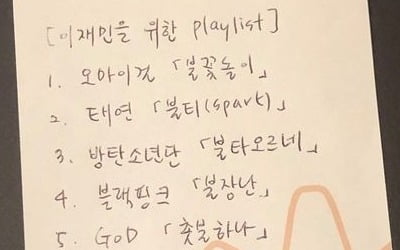 [이재민을 위한 playlist]
1. 오마이걸 「불꽃놀이」
2. 태연 「불티(spark)」
3. 방탄소년단 「불타오르네」
4. 블랙핑크 「불장난」
5. GOD 「촛불하나」